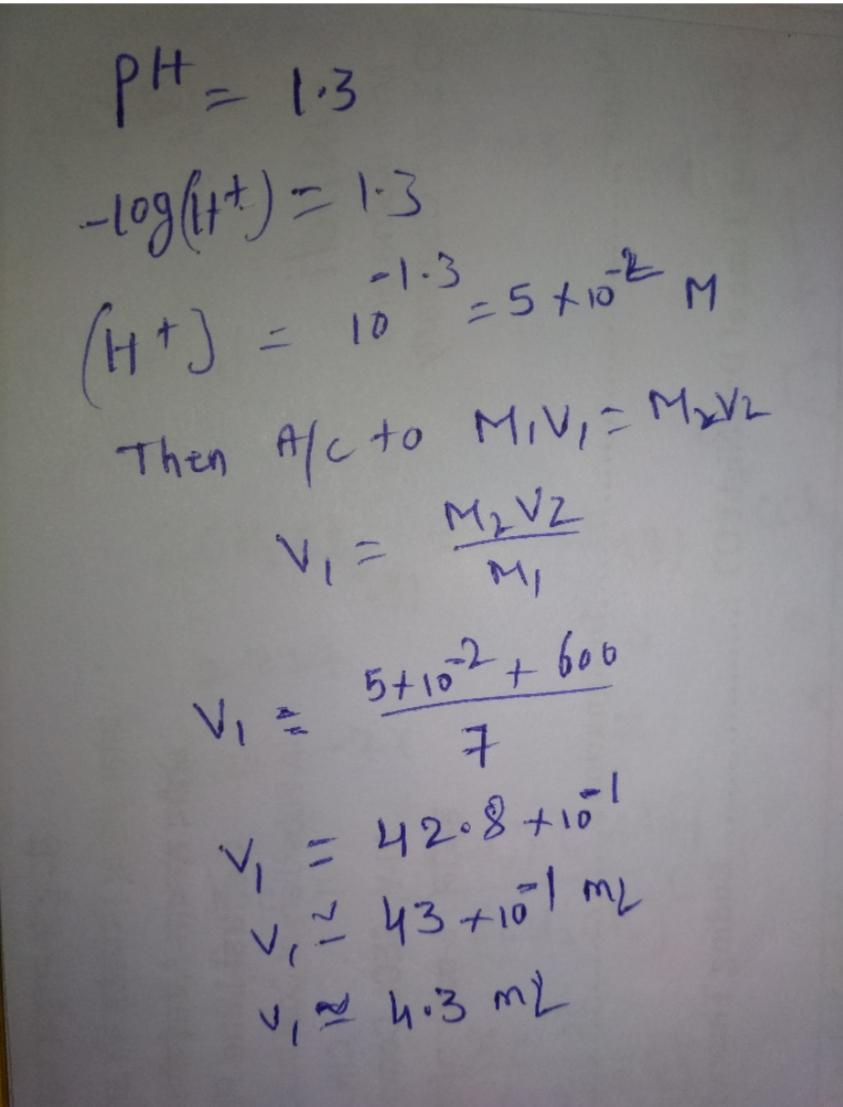 pH = 1.3
-log(H+) = 1.3
(H+] = 10^-1.3 = 5 × 10^-2 M
Then A/c to M1V1 = M2V2
V1 = M2V2 / M1
V1 = 5×10^-2 × 600 / 7
V1 = 42.8 × 10^-1
V1 ≃ 43 × 10^-1 mL
V1 ≃ 4.3 mL